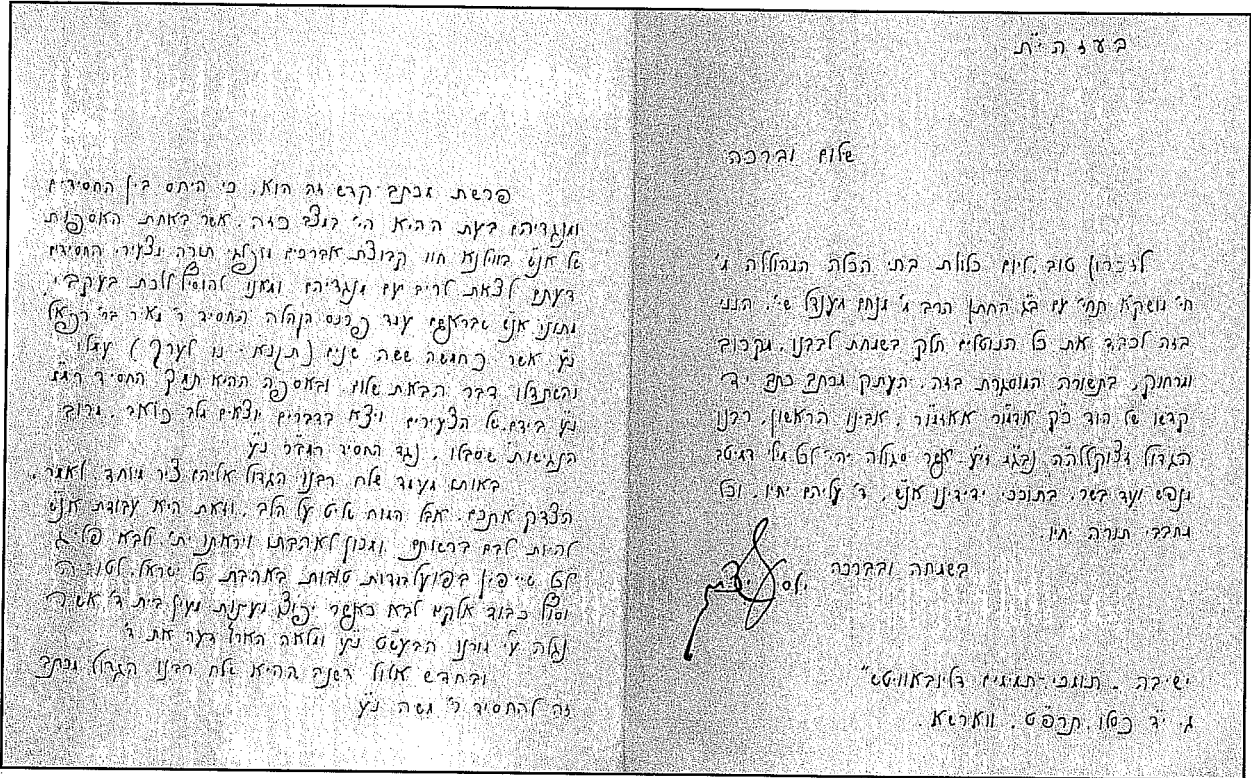 בעזה"ת
שלום וברכה
לזכרון טוב ליום כלולת בתי הכלה המהוללה מ'
חי' מושקא תחי' עם ב"ג החתן הרב מ' מנחם מענדל שי', הנני
בזה לכבד את כל הנוטלים חלק בשמחת לבבנו, מקרוב
ומרחוק, בתשורה המוסגרת בזה, העתק מכתב כתב יד
קדשו של הוד כ"ק אדמו"ר אאזמו"ר, אבינו הראשון, רבנו
הגדול זצוקללה"ה נבג"מ זי"ע אשר סגולה יהי' לט מילי דמיטב
מנפש ועד בשר, בתוככי ידידינו אנ"ש, ד' עליהם יחיו, וכל
מחבבי תורה יחיו.
בשמחה ובברכה
ישיבה - תומכי-תמימים דליובאוויטש
ג. י"ד כסלו, תרפ"ט. ווארשא.
פרשת מכתב קדש זה הוא, כי היחס בין החסידים
ומנגדיהם בעת ההיא הי' במצב כזה, אשר באחת האספות
של אנ"ש בווילנא חוו קבוצת אברכים מופלגי תורה וצעירי החסידים
דעתם לצאת לריב עם מנגדיהם ומאנו להוסיף ללכת בעקבי
מתוני אנ"ש שבראשם עמד פרנס הקהלה החסיד ר' מאיר בר' רפאל
נ"ע אשר כחמשה ששה שנים (תקנא - נו לערך) עמלו
והשתדלו דבר הבאת שלום, ובאסיפה ההיא תמך החסיד
נ"ע בידם של הצעירים ויצא בדברים יוצאים מלב כואב, מרוב
הנגישות שסבלו, נגד החסיד נ"ע
באותו מעמד שלח רבנו הגדול אליהם ציר מיוחד, לאמר,
הצדק אתכם, אבל המוח שליט על הלב, וזאת היא עבודת אנ"ש
להיות לבם ברשותם, ומכון לאהבתו ויראתו ית', ולבא
בפועל במדות טובות באהבת כל ישראל,
וסוף כבוד אלקים לבא כאשר יפוצו מעינות מעין בית ד' אשר
נגלה ע"י מורנו הבעש"ט נ"ע ומלאה הארץ דעה את ד'
ובחדש אלול דשנה ההיא שלח רבנו הגדול מכתב
זה להחסיד ר' משה נ"ע